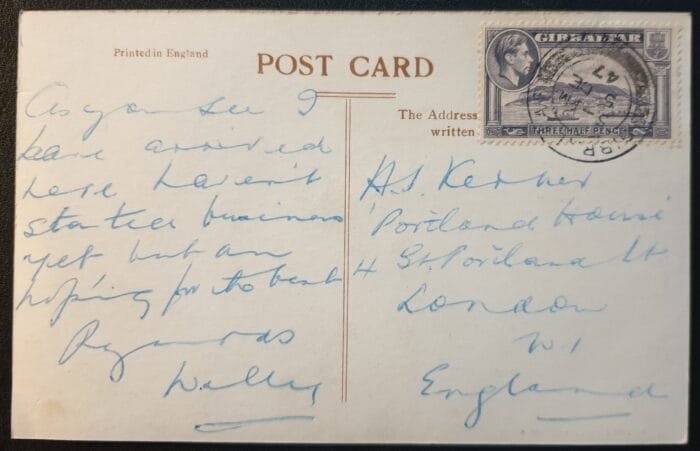 Printed in England
POST CARD
The Address
written
GIBRALTAR
THREE HALF PENCE
47
As you see I
have arrived
here haven't
started business
yet but am
hoping for the best
Regards
Wally
H.S.
'Portland House'
4 Gt. Portland St
London
W1
England